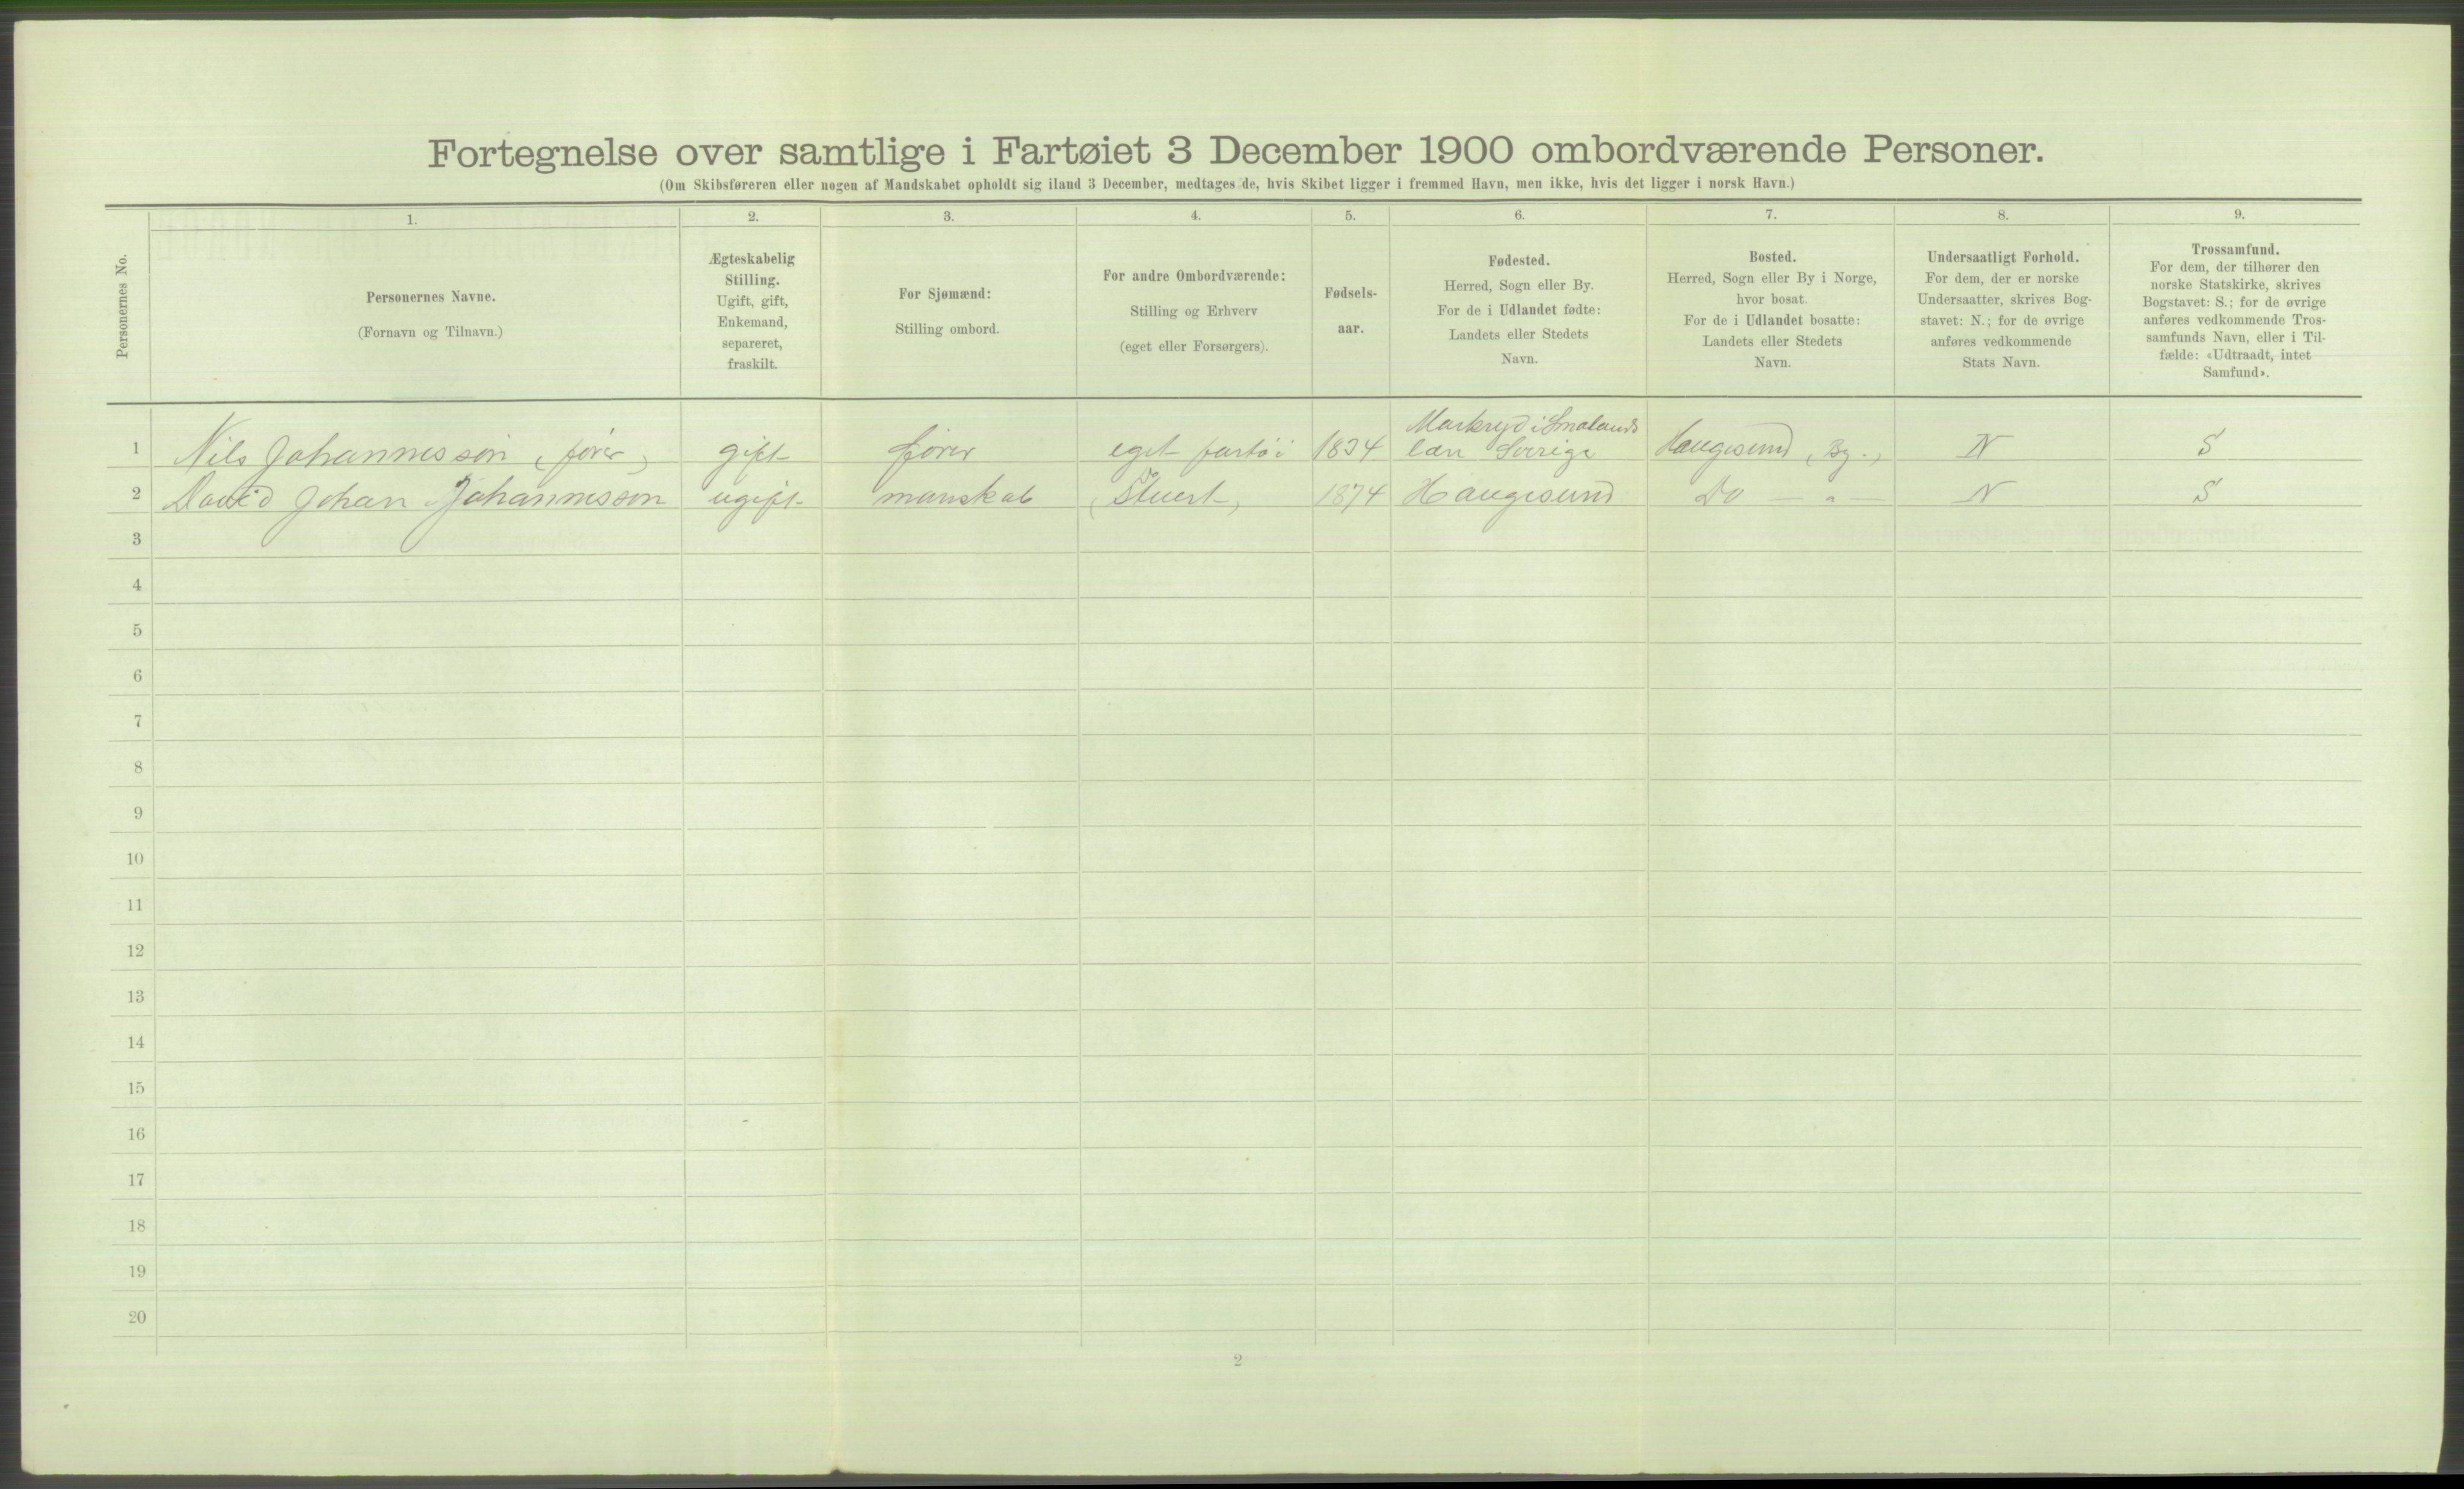 Fortegnelse over samtlige i Fartøiet 3 December 1900 ombordværende Personer.
(Om Skibsføreren eller nogen af Mandskabet opholdt sig iland 3 December, medtages de, hvis Skibet ligger i fremmed Havn, men ikke, hvis det ligger i norsk Havn.)
Personernes No.
1.
Personernes Navne.
(Fornavn og Tilnavn.)
2.
Ægteskabelig
Stilling.
Ugift, gift,
Enkemand,
separeret,
fraskilt.
3.
For Sjømænd:
Stilling ombord.
4.
For andre Ombordværende:
Stilling og Erhverv
(eget eller Forsørgers).
5.
Fødsels-
aar.
6.
Fødested.
Herred, Sogn eller By.
For de i Udlandet fødte:
Landets eller Stedets
Navn.
7.
Bosted.
Herred, Sogn eller By i Norge,
hvor bosat.
For de i Udlandet bosatte:
Landets eller Stedets
Navn.
8.
Undersaatligt Forhold.
For dem, der er norske
Undersaatter, skrives Bog-
stavet: N.; for de øvrige
anføres vedkommende
Stats Navn.
9.
Trossamfund.
For dem, der tilhører den
norske Statskirke, skrives
Bogstavet: S.; for de øvrige
anføres vedkommende Tros-
samfunds Navn, eller i Til-
fælde: «Udtraadt, intet
Samfund».
1 Nils Johannesson (fører) gift fører eget fartøi 1834 Markryd i Smalands
læn Sverige Haugesund (By.) N S
2 David Johan Johannesson ugift manskab (Stuert) 1874 Haugesund Do — " — N S
3
4
5
6
7
8
9
10
11
12
13
14
15
16
17
18
19
20
2